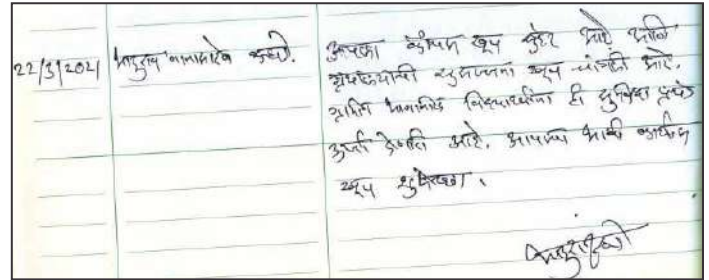 22/3/2021
आपला कॅम्पस खूप सुंदर आहे आणि
ग्रंथालयाची सुसज्जता खूप चांगली आहे.
ग्रामीण भागातील विद्यार्थ्यांना ही सुविधा
ऊर्जा देणारी आहे. आपणास भावी कार्यास
खूप शुभेच्छा.